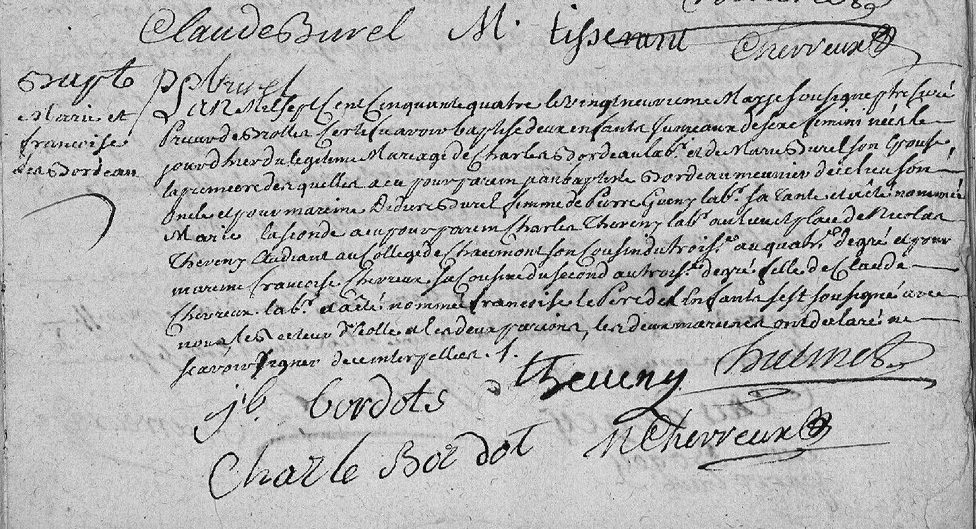 Claude Burel M. tissenant Chevreux
Bapt
Marie et
francoise
des Bordeau
L'an Mil sept Cent Cinquante quatre le vingt neuvieme May je soussigné ptre Curé
Certifie avoir baptisé deux enfants Jumeaux de sexe feminin neés le
jour d'hier du legitime Mariage de Charles Bordeau lab.r et de Marie Burel son Epouse
la premiere des quelles a eu pour parein Jean baptiste Bordeau meunier de ce lieu son
Oncle et pour mareine Burel femme de pierre lab.r sa Tante et a eté nommeé
Marie la seconde a eu pour parein Charles Theveny lab.r au lieu et place de Nicolas
Theveny Etudiant au College de Chaumont son Cousin du trois.e au quatr.e degré et pour
mareine francoise Chevreux sa Cousine du second au trois.e degré fille de Claude
Chevreux lab.r a eté nommeé francoise le Pere des Enfants s'est soussigné avec
nous, le Recteur d'Ecolle et les deux pareins, les deux mareines ont declaré ne
scavoir signer de ce interpelleés ./.
j b bordots theveny
Charle Bordot N Chevreux